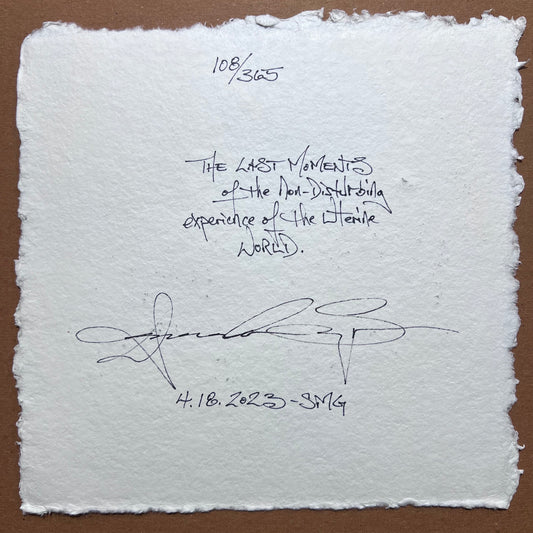 108/365
THE LAST MOMENTS
of the Non-Disturbing
experience of the Uterine
WORLD.
4.18.2023-SMG